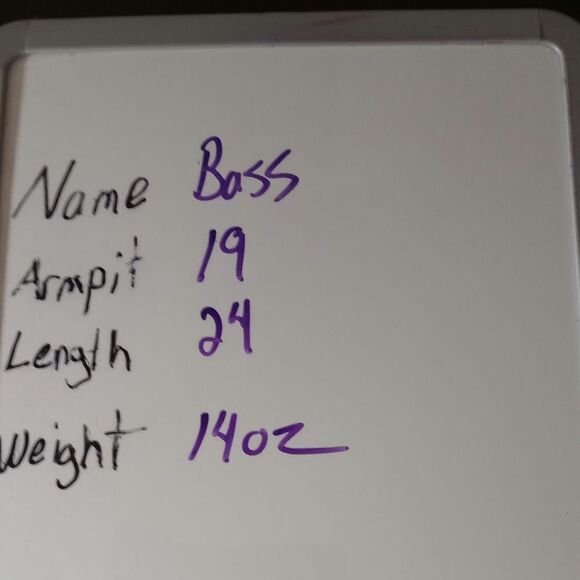 Name Boss
Armpit 19
Length 24
Weight 14oz